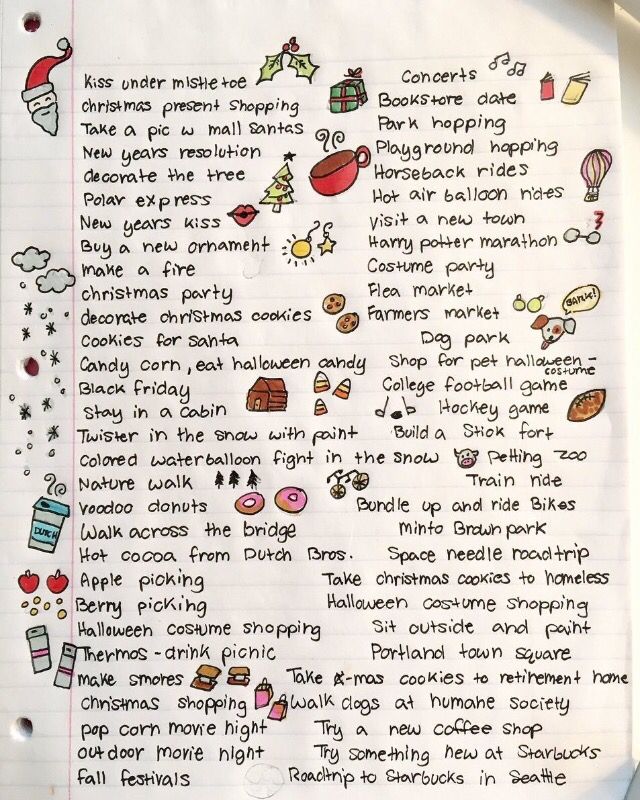 Kiss under mistletoe
christmas present shopping
Take a pic w mall santas
New years resolution
decorate the tree
Polar express
New years kiss
Buy a new ornament
make a fire
christmas party
decorate christmas cookies
Cookies for santa
Candy corn, eat halloween candy
Black friday
Stay in a cabin
Twister in the snow with paint
Colored waterballoon fight in the snow
Nature walk
voodoo donuts
Walk across the bridge
Hot cocoa from Dutch Bros.
Apple picking
Berry picking
Halloween costume shopping
Thermos-drink picnic
make smores
christmas shopping
pop corn movie night
outdoor movie night
fall festivals
DUTCH
Concerts
Bookstore date
Park hopping
Playground hopping
Horseback rides
Hot air balloon rides
visit a new town
Harry potter marathon
Costume party
Flea market
Farmers market
BARK!
Dog park
Shop for pet halloween-
costume
College football game
Hockey game
Build a Stick fort
Petting zoo
Train ride
Bundle up and ride Bikes
Minto Brown park
Space needle roadtrip
Take christmas cookies to homeless
Halloween costume shopping
Sit outside and paint
Portland town square
Take x-mas cookies to retirement home
Walk dogs at humane society
Try a new coffee shop
Try something new at Starbucks
Roadtrip to Starbucks in Seattle